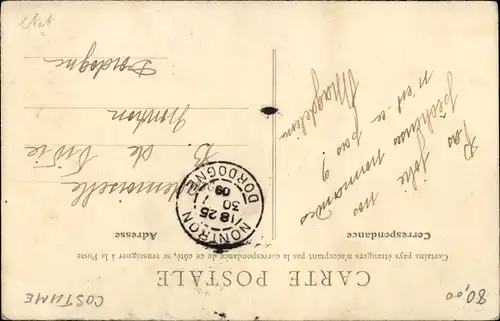 CARTE POSTALE
Certains pays étrangers n'acceptant pas la correspondance de ce côté, se renseigner à la Poste
Correspondance
Adresse
Pas jolie nos normandes
n'est-ce pas ?
Magdeleine
Mademoiselle
B. de
Nontron
Dordogne
NONTRON
18 25
30
09
DORDOGNE
COSTUME
80,00
état